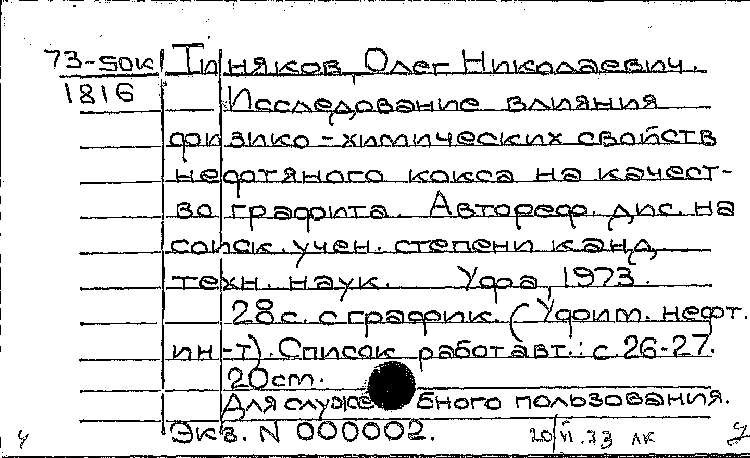 73-50к Тиняков, Олег Николаевич.
1816 Исследование влияния
физико-химических свойств
нефтяного кокса на качест-
во графита. Автореф. дис. на
соиск. учен. степени канд.
техн. наук. Уфа, 1973.
28с. с график. (Уфим. нефт.
ин-т). Список работ авт.: с. 26-27.
20см.
Для служебного пользования.
Экз. N 000002.
20/VI.73 лк